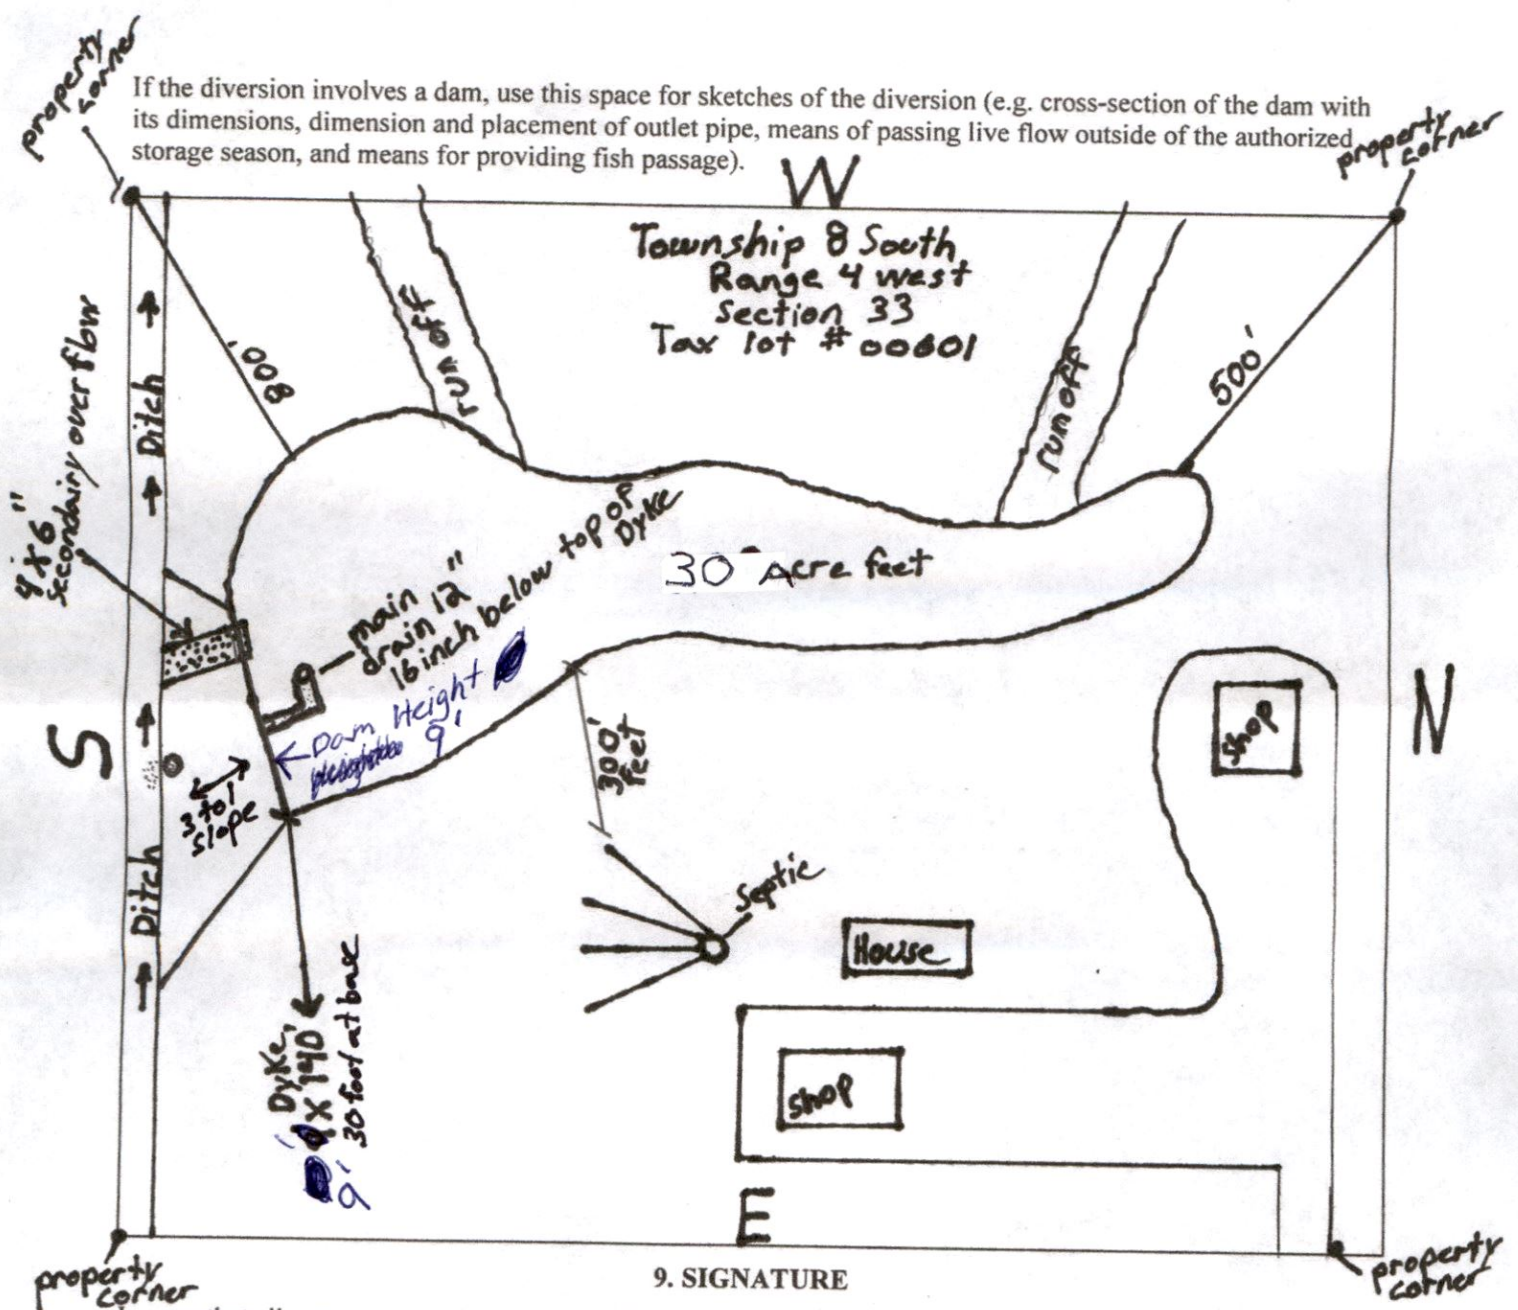 property
corner
If the diversion involves a dam, use this space for sketches of the diversion (e.g. cross-section of the dam with
its dimensions, dimension and placement of outlet pipe, means of passing live flow outside of the authorized
storage season, and means for providing fish passage).
property
corner
W
Township 8 South
Range 4 west
Section 33
Tax lot # 00601
run off
run off
800'
500'
Ditch
4 X 6"
secondairy over flow
main
drain 12"
16 inch below top of
Dyke
30 Acre feet
Dam Height
9'
S
N
3 to 1
slope
300'
feet
shop
Ditch
Septic
House
Dyke
X 140'
30 foot at base
9'
shop
E
property
corner
9. SIGNATURE
property
corner